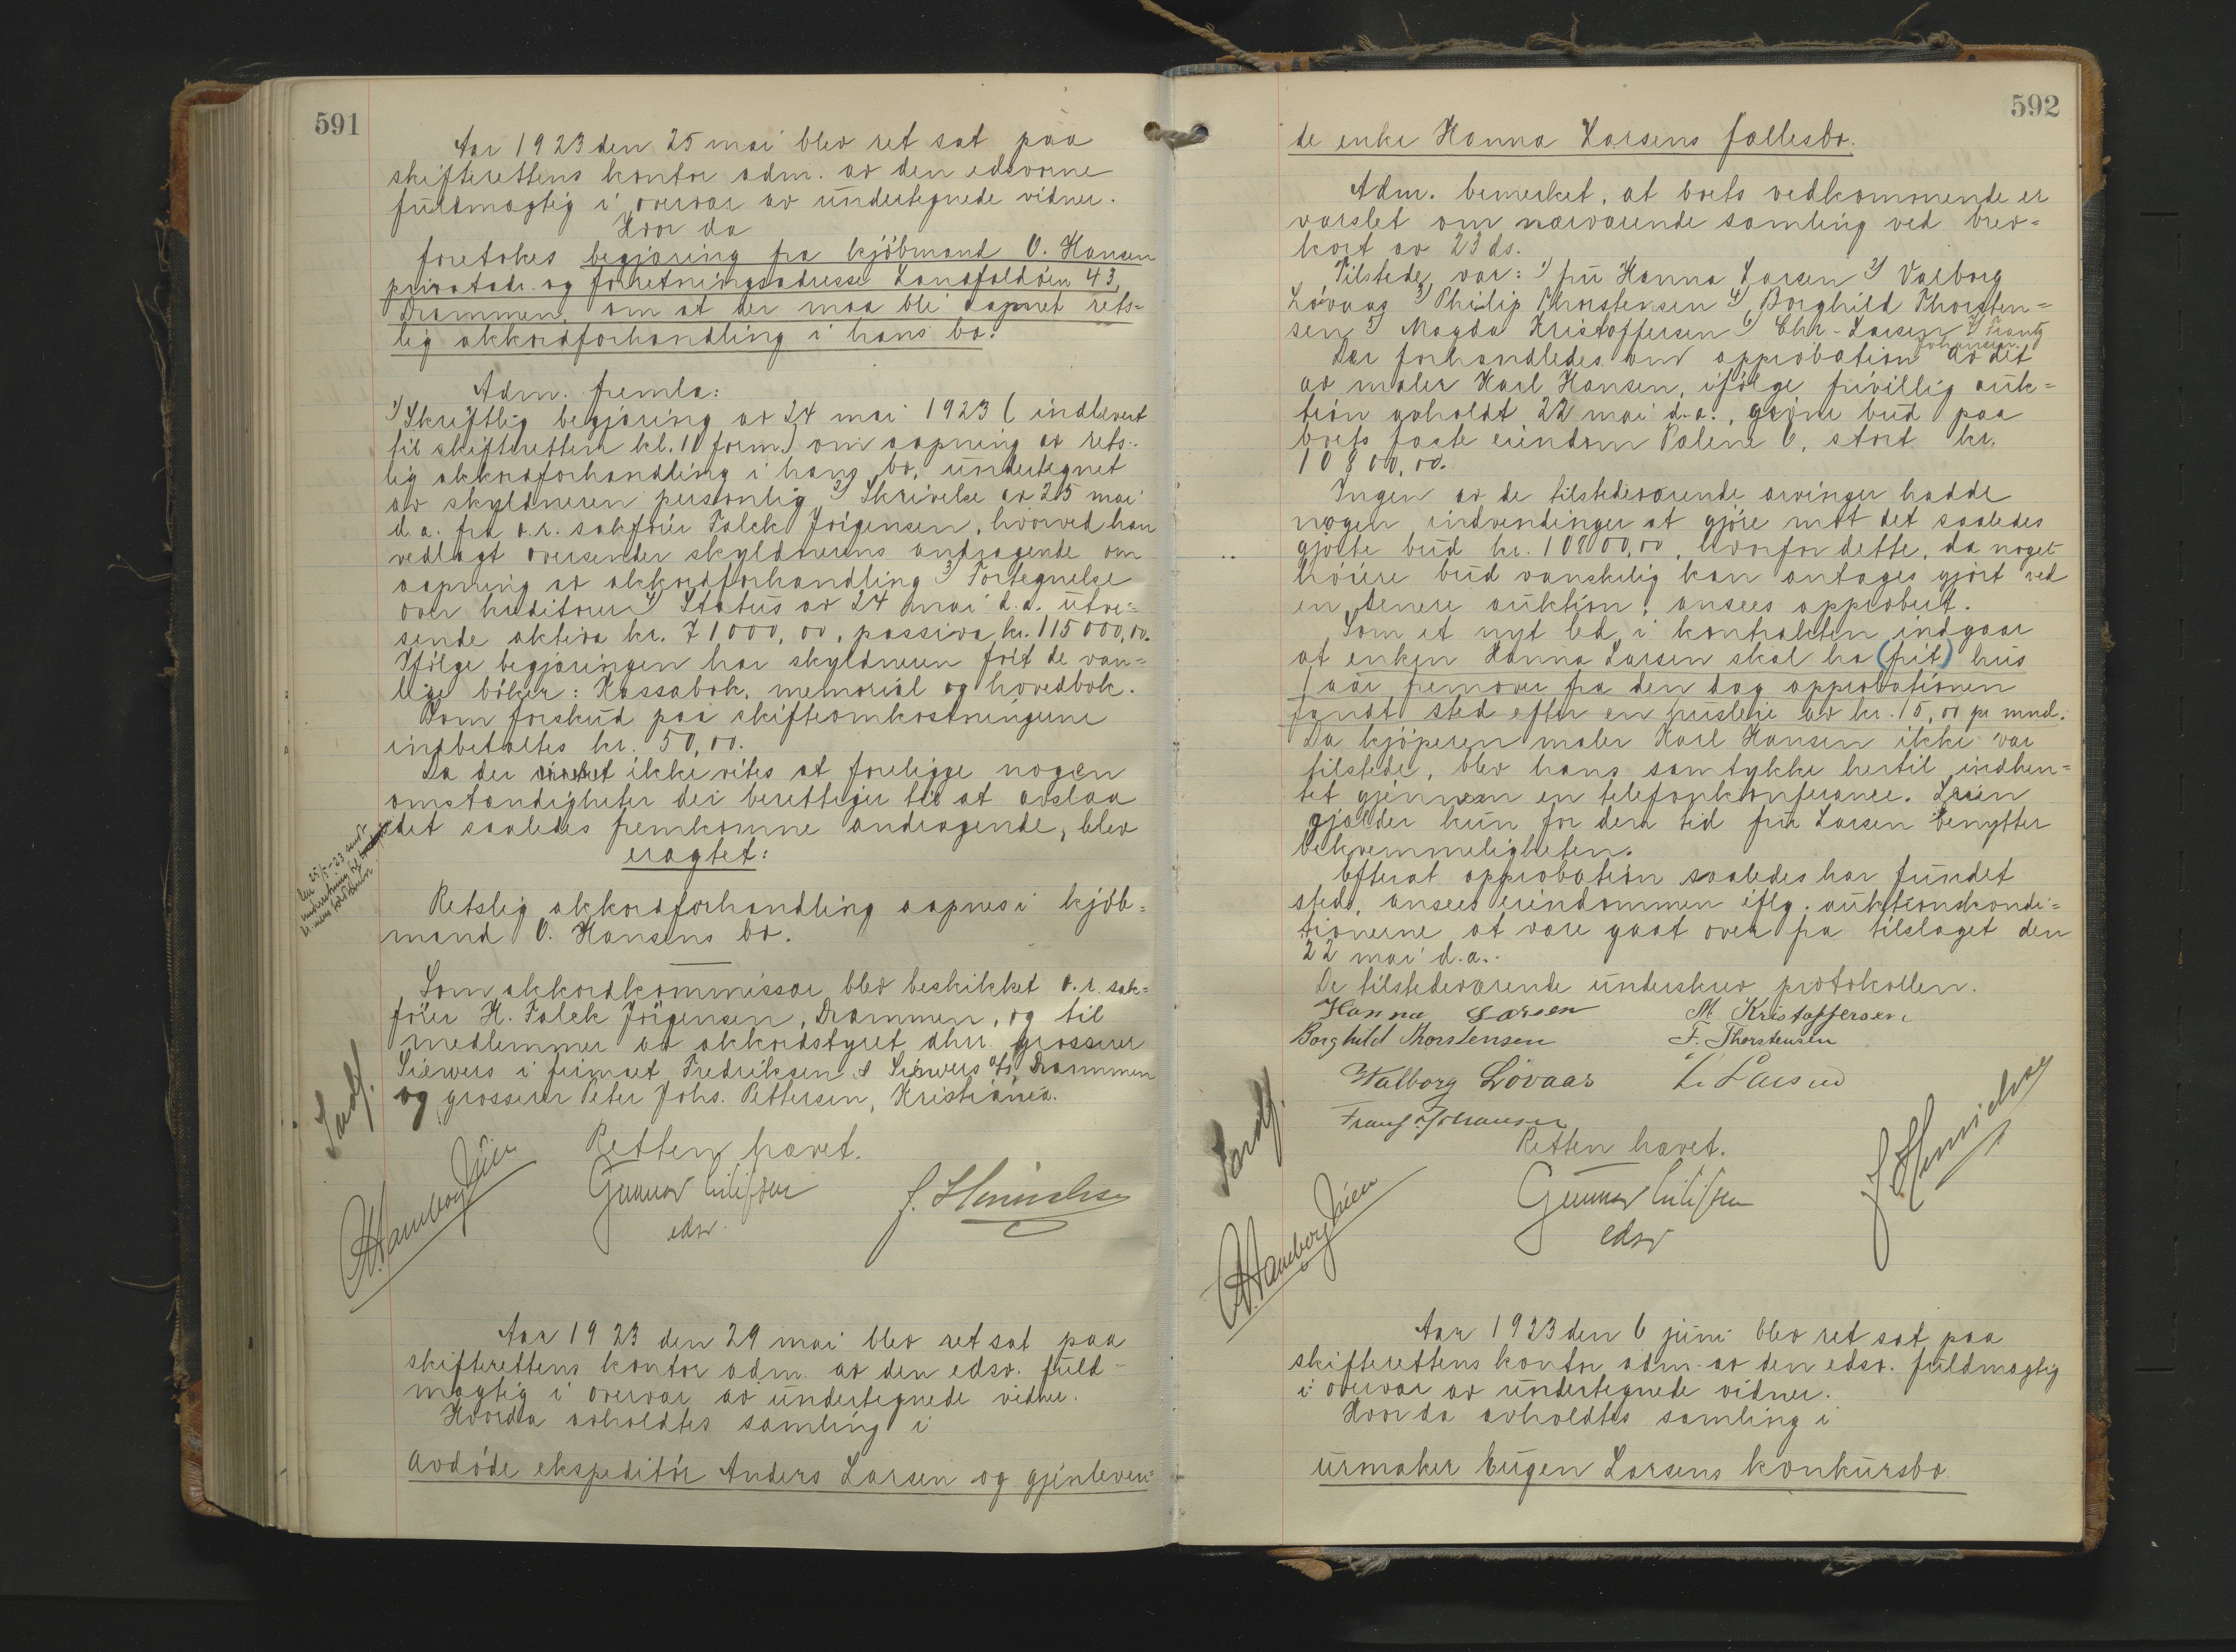 591
Aar 1923 den 25 mai blev ret sat paa
skifterettens kontor adm. av den edsvorne
fuldmægtig i overvær av undertegnede vidner.
Hvor da
foretokes begjæring fra kjöbmand O. Hansen
privatadr. og forretningsadresse Landfaldöen 43,
Drammen, om at der maa bli aapnet rets=
lig akkordforhandling i hans bo.
Adm. fremla:
1) Skriftlig begjæring av 24 mai 1923 ( indlevert
til skifteretten kl. 11 form.) om aapning av rets-
lig akkordforhandling i hans bo, undertegnet
av skyldneren personlig 2) Skrivelse av 25 mai
d.a. fra o.r. sakförer Falck Jörgensen, hvorved han
vedlagt oversender skyldnerens andragende om
aapning av akkordforhandling 3) Fortegnelse
over kreditorer 4) Status av 24 mai d.a. utvi=
sende aktiva kr. 71000,00, passiva kr. 115000,00.
Ifölge begjæringen har skyldneren fört de van=
lige böker: Kassabok, memorial og hovedbok.
Som forskud paa skifteomkostningerne
indbetaltes kr. 50,00.
Da der ikke vites at foreligge nogen
omstændigheter der berettiger til at avslaa
det saaledes fremkomne andragende, blev
eragtet:
den 25/5-23 sendt
Retslig akkordforhandling aapnes i kjöb=
mand O. Hansens bo.
Som akkordkommissær blev beskikket o.r. sak=
förer H. Falck Jörgensen, Drammen, og til
medlemmer av akkordstyret dhrr. grosserer
Siewers i firmaet Fredriksen & Siewers A/S, Drammen
og grosserer Peter Johs. Pettersen, Kristiania.
Retten hævet.
Gunnar
edsv.
Aar 1923 den 29 mai blev ret sat paa
skifterettens kontor adm. av den edsv. fuld-
mægtig i overvær av undertegnede vidner.
Hvorda avholdtes samling i
avdöde ekspeditör Anders Larsen og gjenleven=
592
de enke Hanna Larsens fællesbo.
Adm. bemerket, at boets vedkommende er
varslet om nærværende samling ved brev=
kort av 23 ds.
Tilstede var: 1) fru Hanna Larsen 2) Valborg
Lövaas 3) Philip Thorstensen 4) Borghild Thorsten=
sen 5) Magda Kristoffersen 6) Chr. Larsen 7) Frantz
Johansen.
Der forhandledes om approbation av det
av maler Karl Hansen, ifölge frivillig auk=
tion avholdt 22 mai d.a., gjorte bud paa
boets faste eiendom Pålene 6, stort kr.
10800,00.
Ingen av de tilstedeværende arvinger hadde
nogen indvendinger at gjöre mot det saaledes
gjorte bud kr. 10800,00, hvorfor dette, da noget
höiere bud vanskelig kan antages gjort ved
en senere auktion, ansees approbert.
Som et nyt led i kontrakten indgaar
at enken Hanna Larsen skal ha (frit) hus
1 aar fremover fra den dag approbationen
fandt sted efter en husleie av kr. 15,00 pr mnd.
Da kjöperen maler Karl Hansen ikke var
tilstede, blev hans samtykke hertil indhen=
tet gjennem en telefonkonferance. Leien
gjælder kun for den tid fru Larsen benytter
bekvemmeligheten.
Efterat approbation saaledes har fundet
sted, ansees eiendommen iflg. auktionskondi=
tionerne at være gaat over fra tilslaget den
22 mai d.a.
De tilstedeværende underskrev protokollen.
Hanna Larsen M. Kristoffersen
Borghild Thorstensen F. Thorstensen
Walborg Lövaas
Frantz Johansen
Retten hævet.
Gunnar
edsv
Aar 1923 den 6 juni blev ret sat paa
skifterettens kontor adm. av den edsv. fuldmægtig
i overvær av undertegnede vidner.
Hvor da avholdtes samling i
urmaker Eugen Larsens konkursbo.